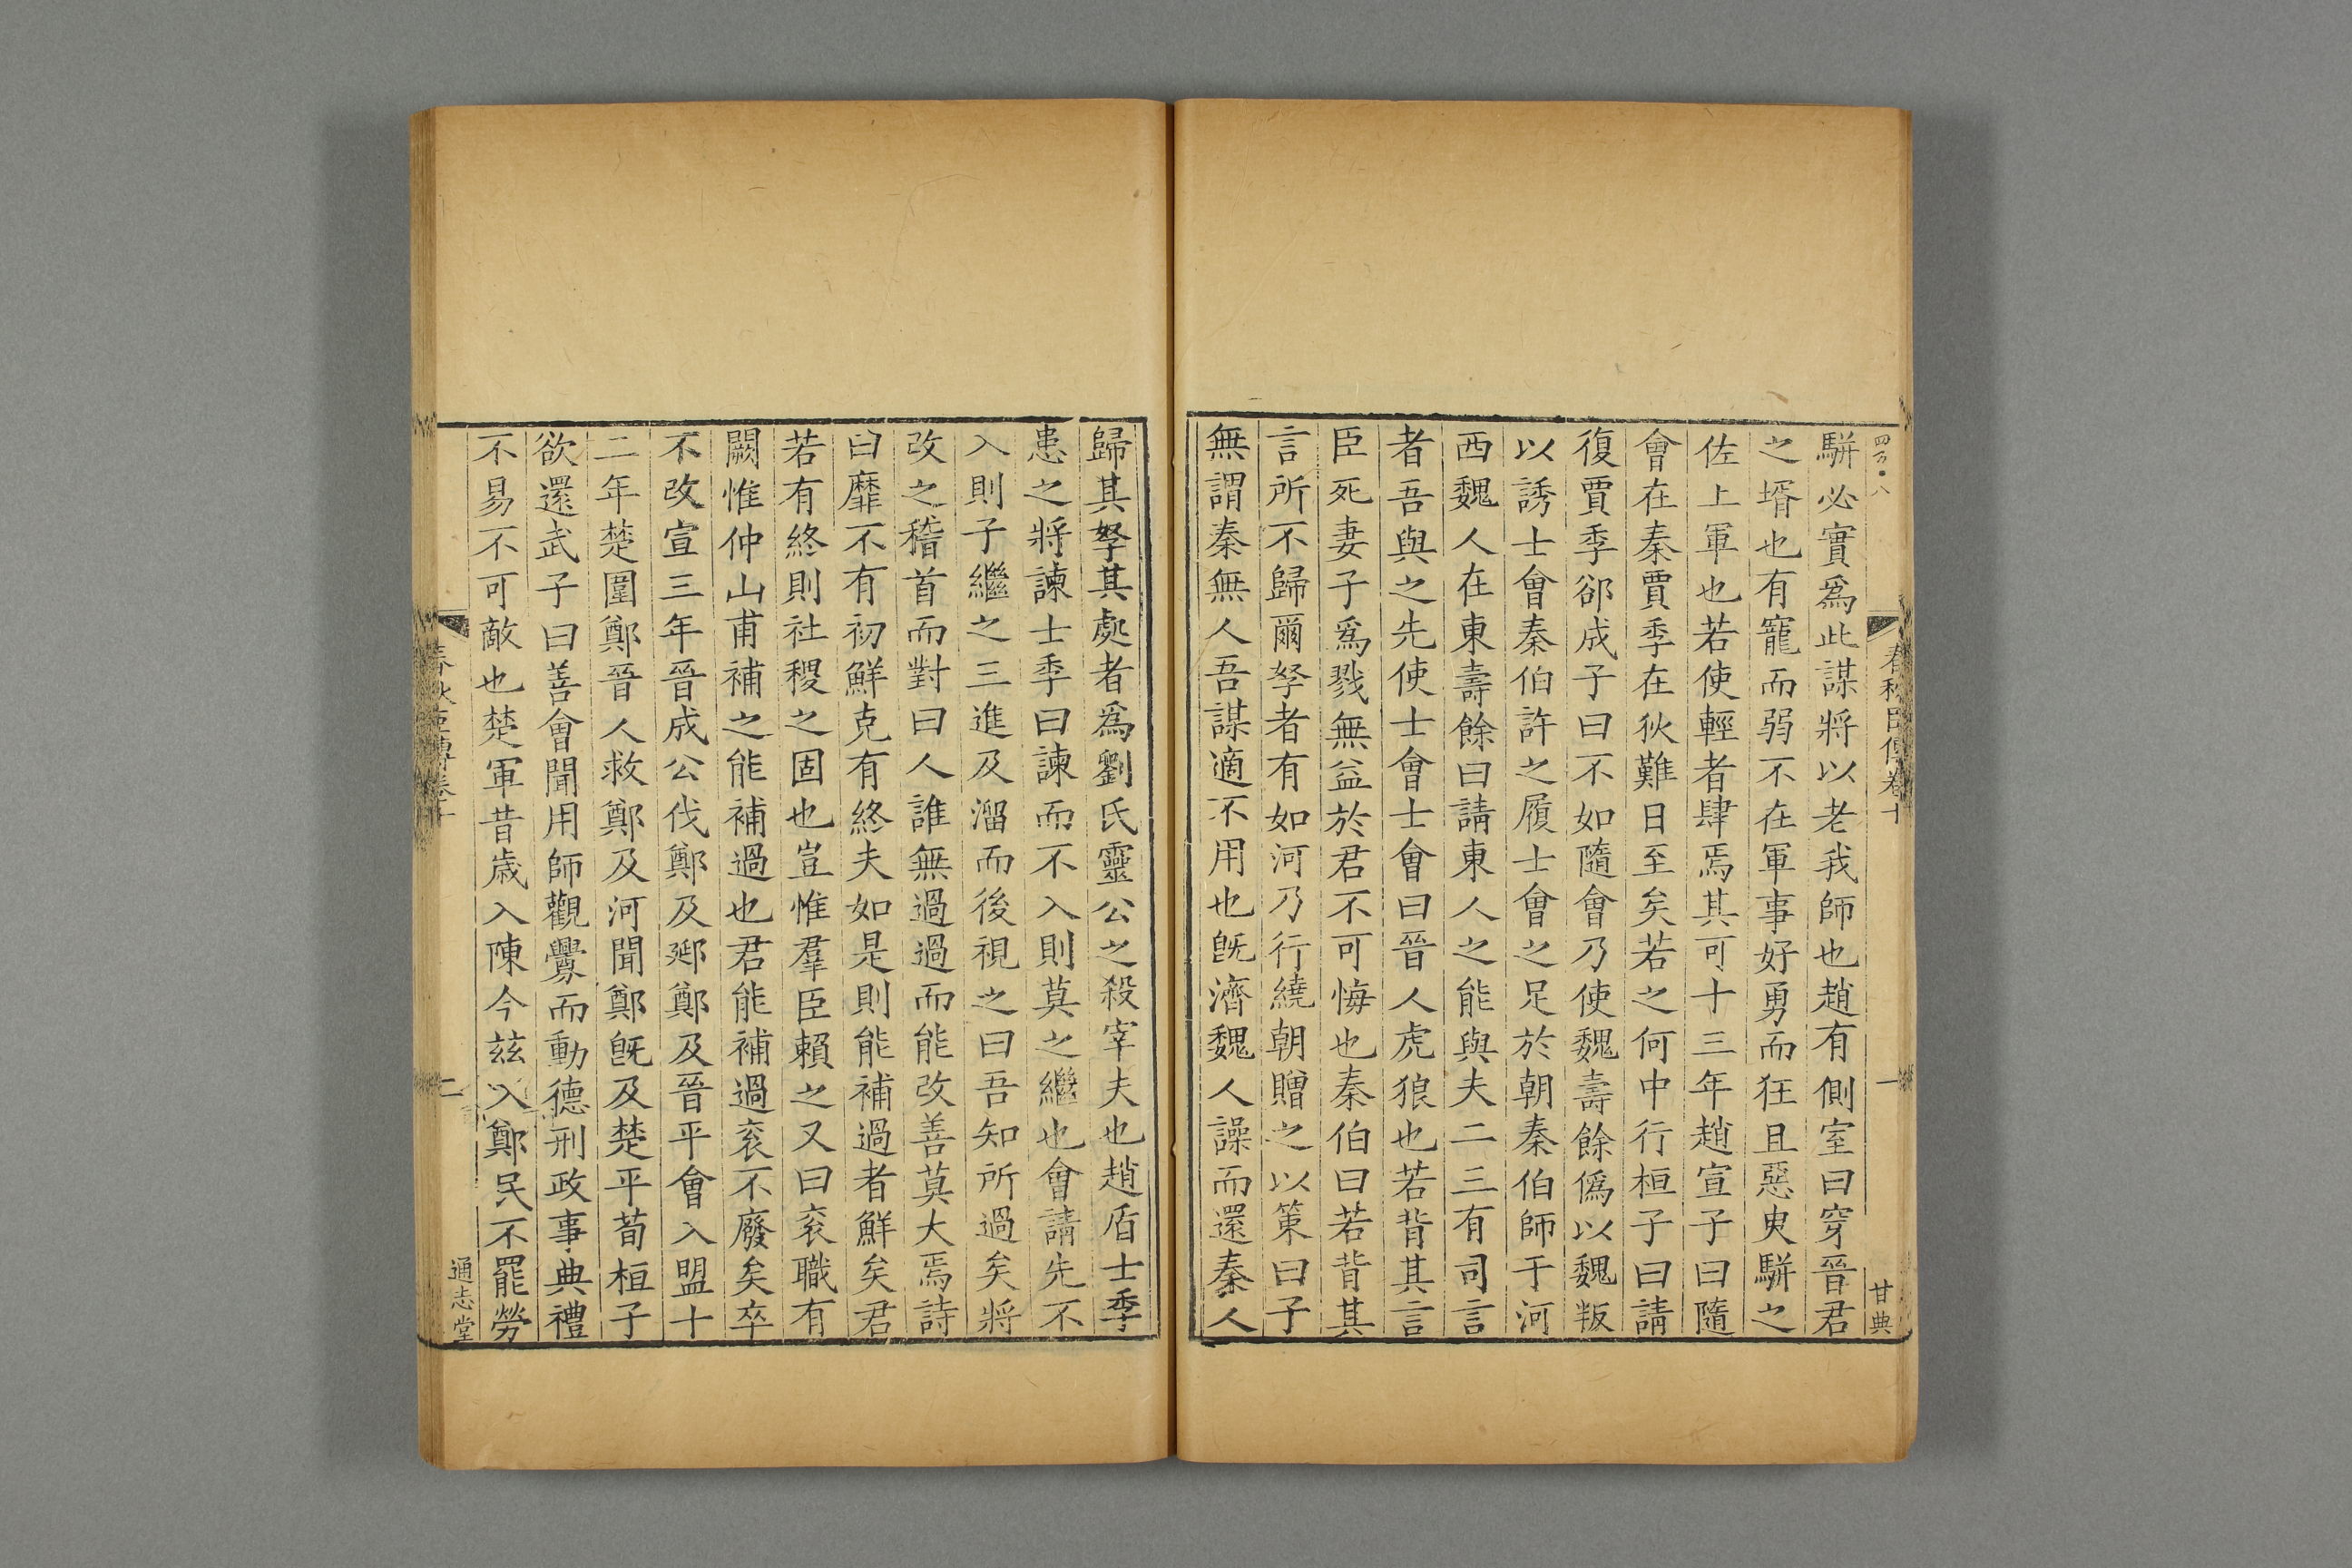 春秋臣傳卷十
一
甘典
駢必實爲此謀將以老我師也趙有側室曰穿晉君
之壻也有寵而弱不在軍事好勇而狂且惡臾駢之
佐上軍也若使輕者肆焉其可十三年趙宣子曰隨
會在秦賈季在狄難日至矣若之何中行桓子曰請
復賈季郤成子曰不如隨會乃使魏壽餘僞以魏叛
以誘士會秦伯許之履士會之足於朝秦伯師于河
西魏人在東壽餘曰請東人之能與夫二三有司言
者吾與之先使士會士會曰晉人虎狼也若背其言
臣死妻子爲戮無益於君不可悔也秦伯曰若背其
言所不歸爾孥者有如河乃行繞朝贈之以策曰子
無謂秦無人吾謀適不用也旣濟魏人譟而還秦人
歸其孥其處者爲劉氏靈公之殺宰夫也趙盾士季
患之將諫士季曰諫而不入則莫之繼也會請先不
入則子繼之三進及溜而後視之曰吾知所過矣將
改之稽首而對曰人誰無過過而能改善莫大焉詩
曰靡不有初鮮克有終夫如是則能補過者鮮矣君
若有終則社稷之固也豈惟羣臣賴之又曰衮職有
闕惟仲山甫補之能補過也君能補過衮不廢矣卒
不改宣三年晉成公伐鄭及郔鄭及晉平會入盟十
二年楚圍鄭晉人救鄭及河聞鄭旣及楚平荀桓子
欲還武子曰善會聞用師觀釁而動德刑政事典禮
不易不可敵也楚軍昔歲入陳今茲入鄭民不罷勞
春秋臣傳卷十
二
通志堂